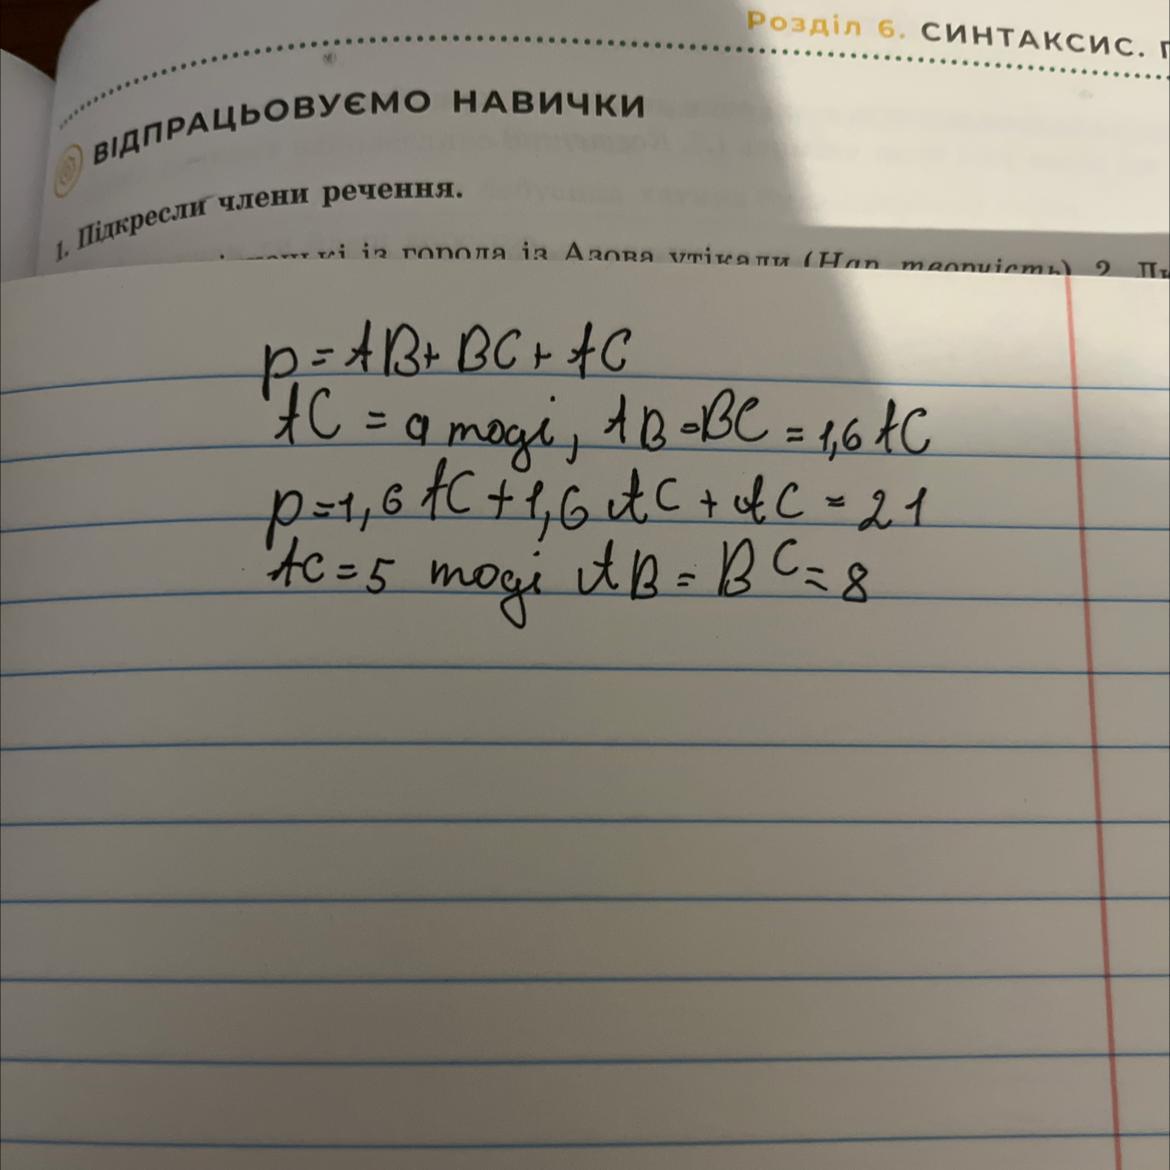 Розділ 6. СИНТАКСИС.
ВІДПРАЦЬОВУЄМО НАВИЧКИ
1. Підкресли члени речення.
із города із Азова утікали (Нар. творчість). 2.
p=AB+BC+AC
AC = a тоді, AB=BC=1,6AC
p=1,6AC+1,6AC+AC=21
AC=5 тоді AB=BC=8